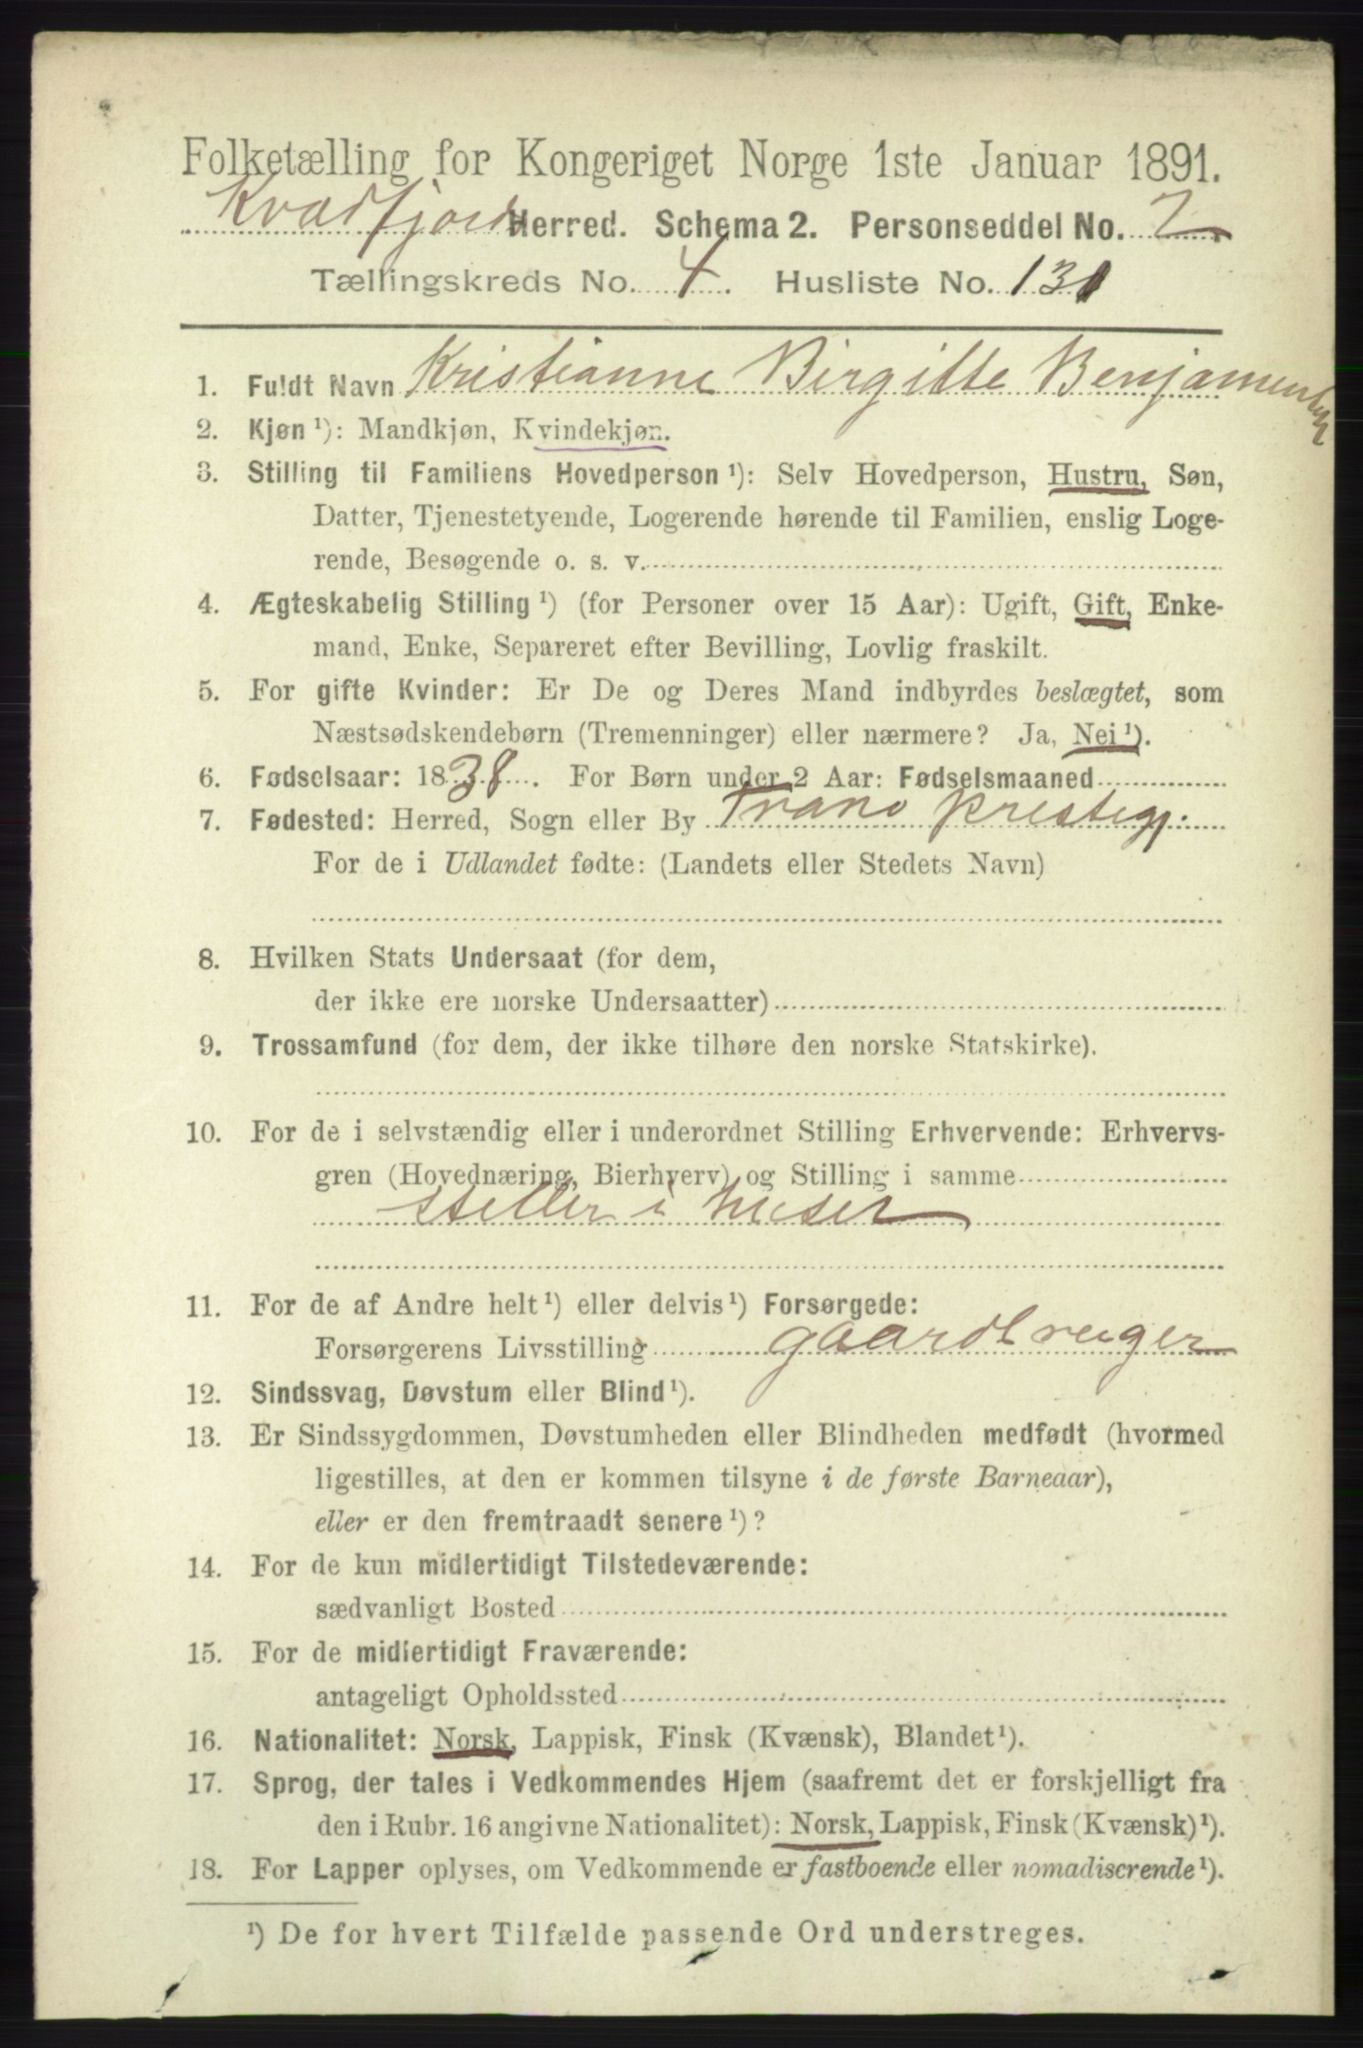 Folketælling for Kongeriget Norge 1ste Januar 1891.
Kvædfjord Herred. Schema 2. Personseddel No. 2.
Tællingskreds No. 4. Husliste No. 131
1. Fuldt Navn Kristianne Birgitte Benjamensen
2. Kjøn ¹): Mandkjøn, Kvindekjøn.
3. Stilling til Familiens Hovedperson ¹): Selv Hovedperson, Hustru, Søn,
Datter, Tjenestetyende, Logerende hørende til Familien, enslig Loge-
rende, Besøgende o. s. v.
4. Ægteskabelig Stilling ¹) (for Personer over 15 Aar): Ugift, Gift, Enke-
mand, Enke, Separeret efter Bevilling, Lovlig fraskilt.
5. For gifte Kvinder: Er De og Deres Mand indbyrdes beslægtet, som
Næstsødskendebørn (Tremenninger) eller nærmere? Ja, Nei ¹).
6. Fødselsaar: 1838. For Børn under 2 Aar: Fødselsmaaned
7. Fødested: Herred, Sogn eller By Trano prestegj.
For de i Udlandet fødte: (Landets eller Stedets Navn)
8. Hvilken Stats Undersaat (for dem,
der ikke ere norske Undersaatter)
9. Trossamfund (for dem, der ikke tilhøre den norske Statskirke).
10. For de i selvstændig eller i underordnet Stilling Erhvervende: Erhvervs-
gren (Hovednæring, Bierhverv) og Stilling i samme
steller i huset
11. For de af Andre helt ¹) eller delvis ¹) Forsørgede:
Forsørgerens Livsstilling gaardbruger
12. Sindssvag, Døvstum eller Blind ¹).
13. Er Sindssygdommen, Døvstumheden eller Blindheden medfødt (hvormed
ligestilles, at den er kommen tilsyne i de første Barneaar),
eller er den fremtraadt senere ¹)?
14. For de kun midlertidigt Tilstedeværende:
sædvanligt Bosted
15. For de midlertidigt Fraværende:
antageligt Opholdssted
16. Nationalitet: Norsk, Lappisk, Finsk (Kvænsk), Blandet ¹).
17. Sprog, der tales i Vedkommendes Hjem (saafremt det er forskjelligt fra
den i Rubr. 16 angivne Nationalitet): Norsk, Lappisk, Finsk (Kvænsk) ¹).
18. For Lapper oplyses, om Vedkommende er fastboende eller nomadiserende ¹).
¹) De for hvert Tilfælde passende Ord understreges.